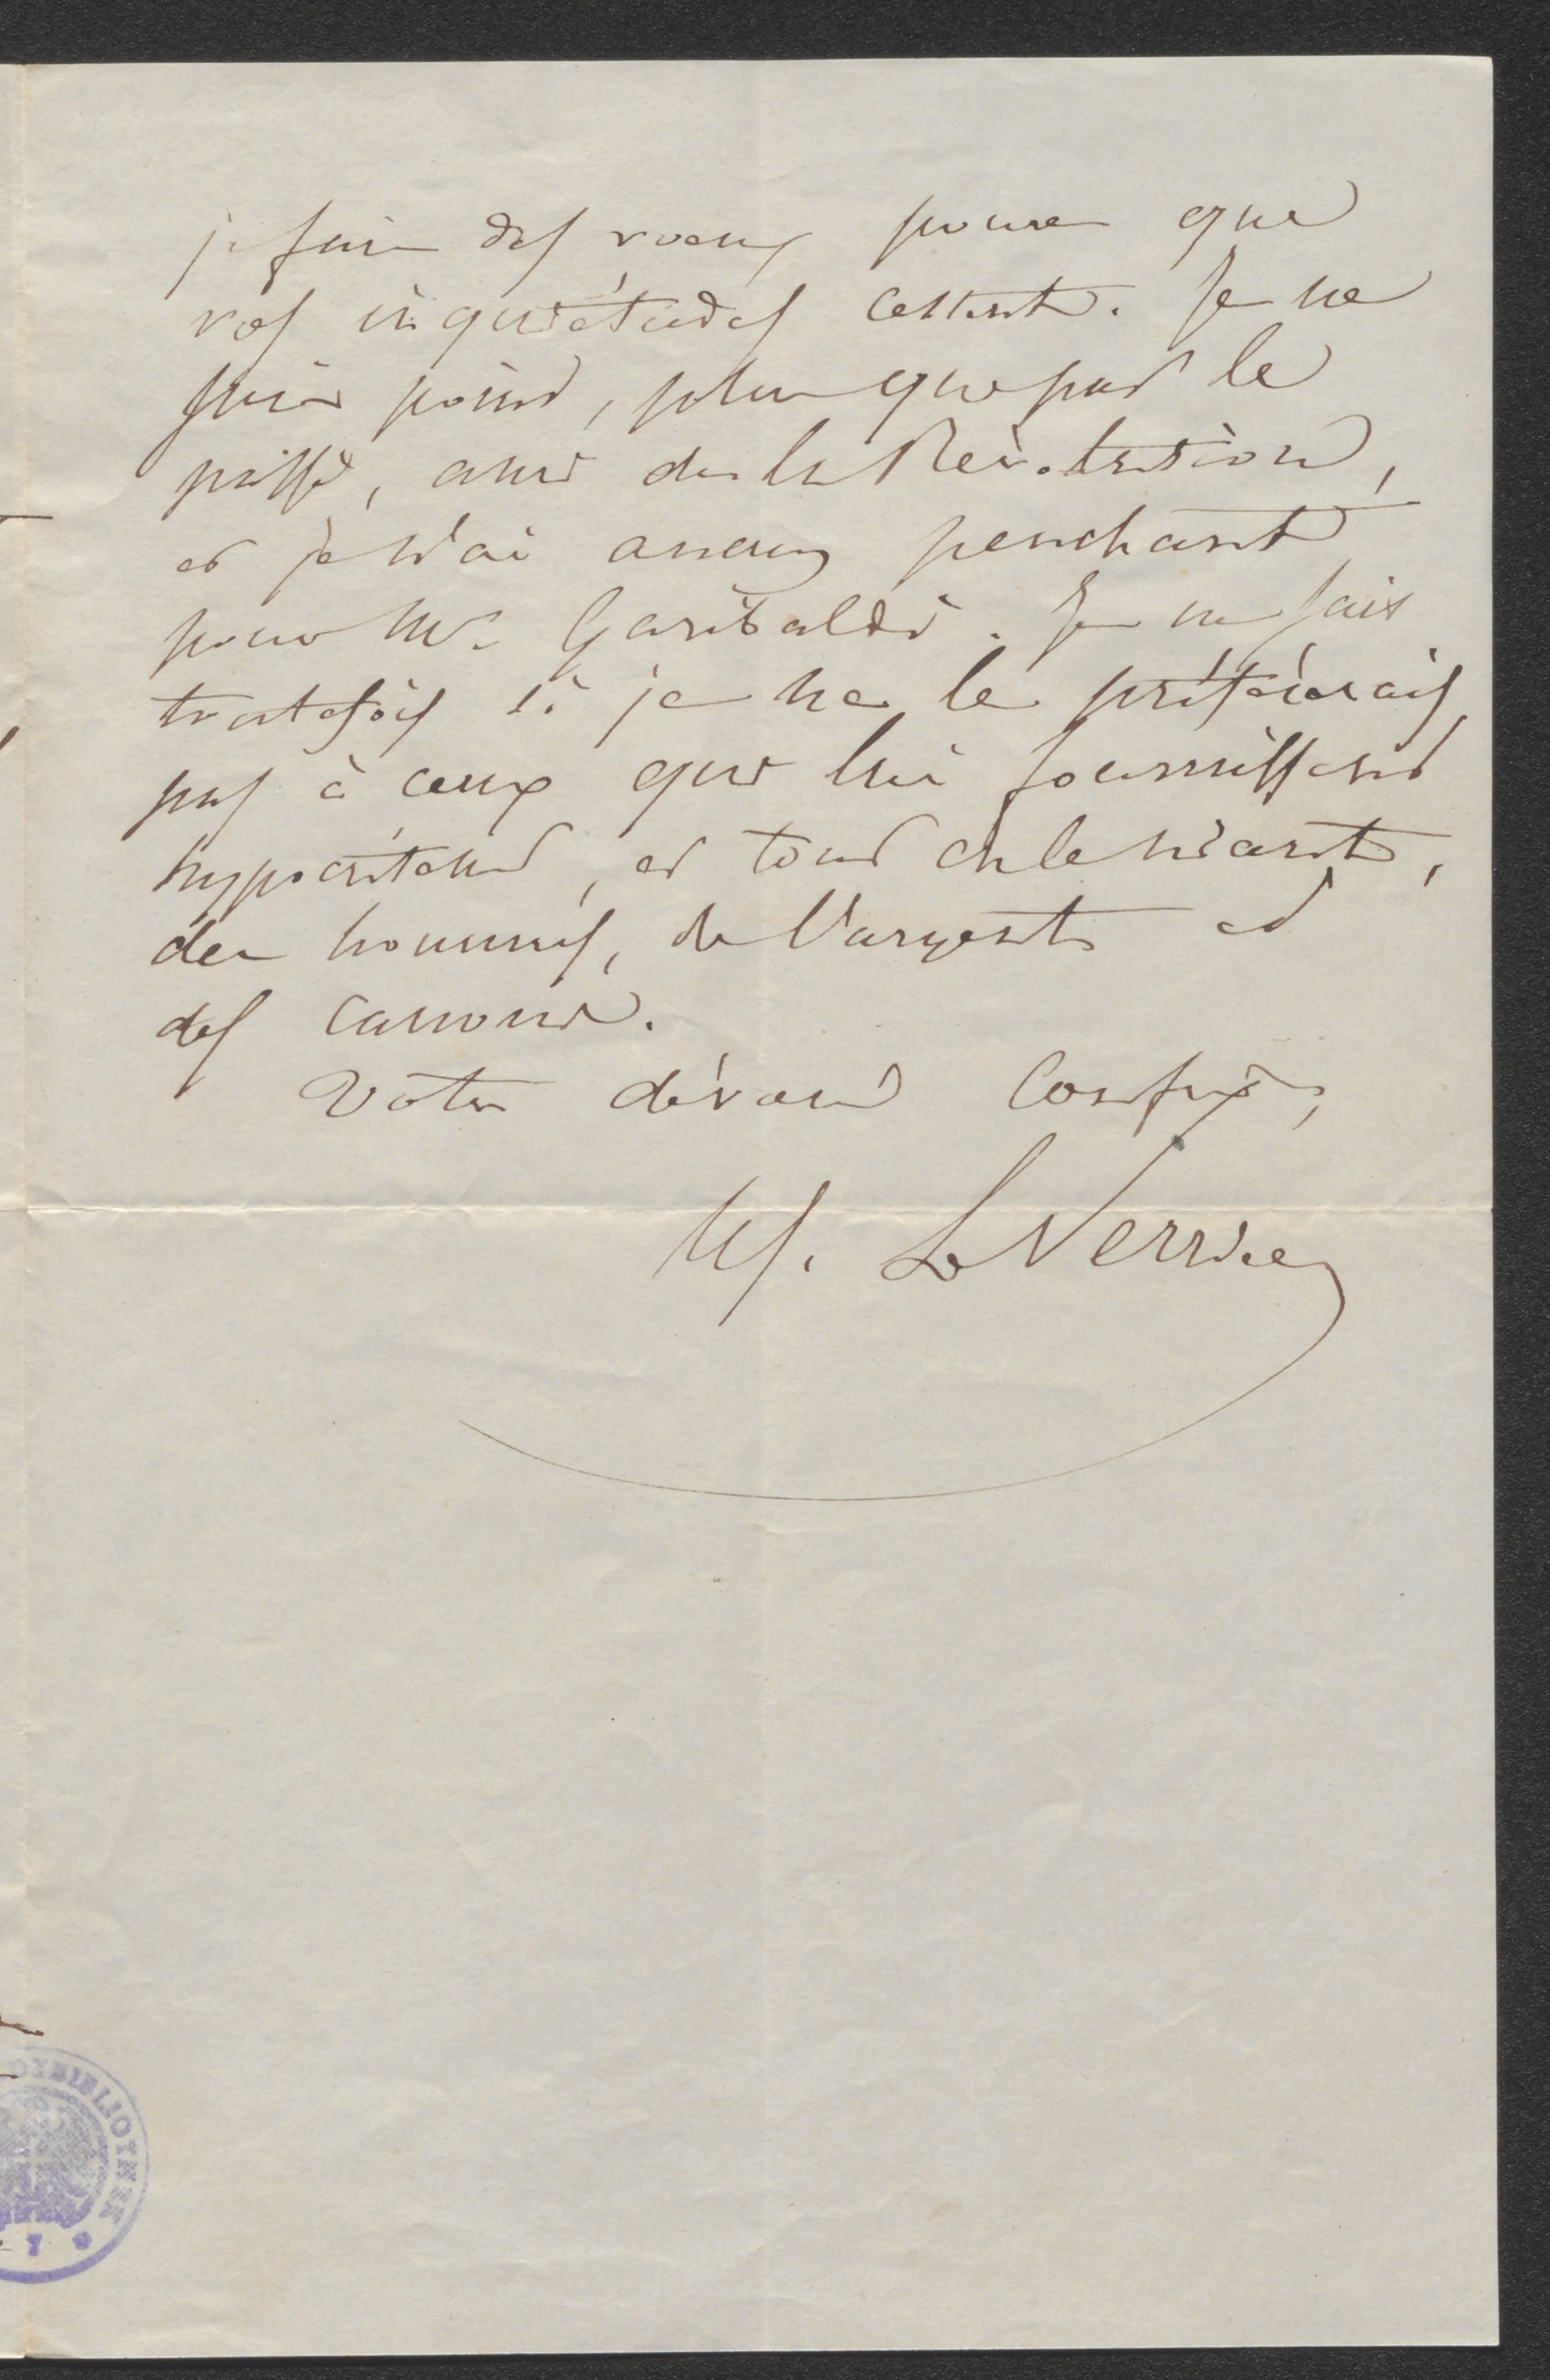 je fais des voeux pour que
vos inquiétudes cessent. Je ne
suis point, plus que par le
passé, ami de la Révolution,
et je n'ai aucun penchant
pour Mr. Garibaldi. Je ne sais
toutefois si je ne le préférerais
pas à ceux qui lui fournissent
hypocritement, et tout en le niant,
des hommes, de l'argent et
des canons.
Votre dévoué Confrère,
LeVerrier